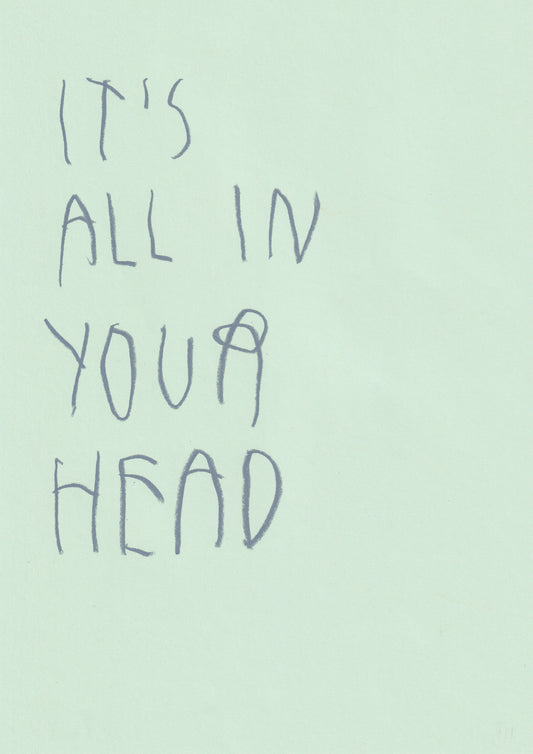 IT'S
ALL IN
YOUR
HEAD